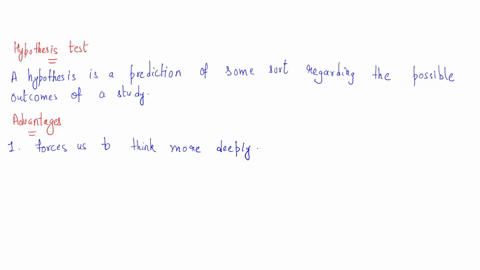 Hypothesis test
A hypothesis is a prediction of some sort regarding the possible
outcomes of a study.
Advantages
1. Forces us to think more deeply.